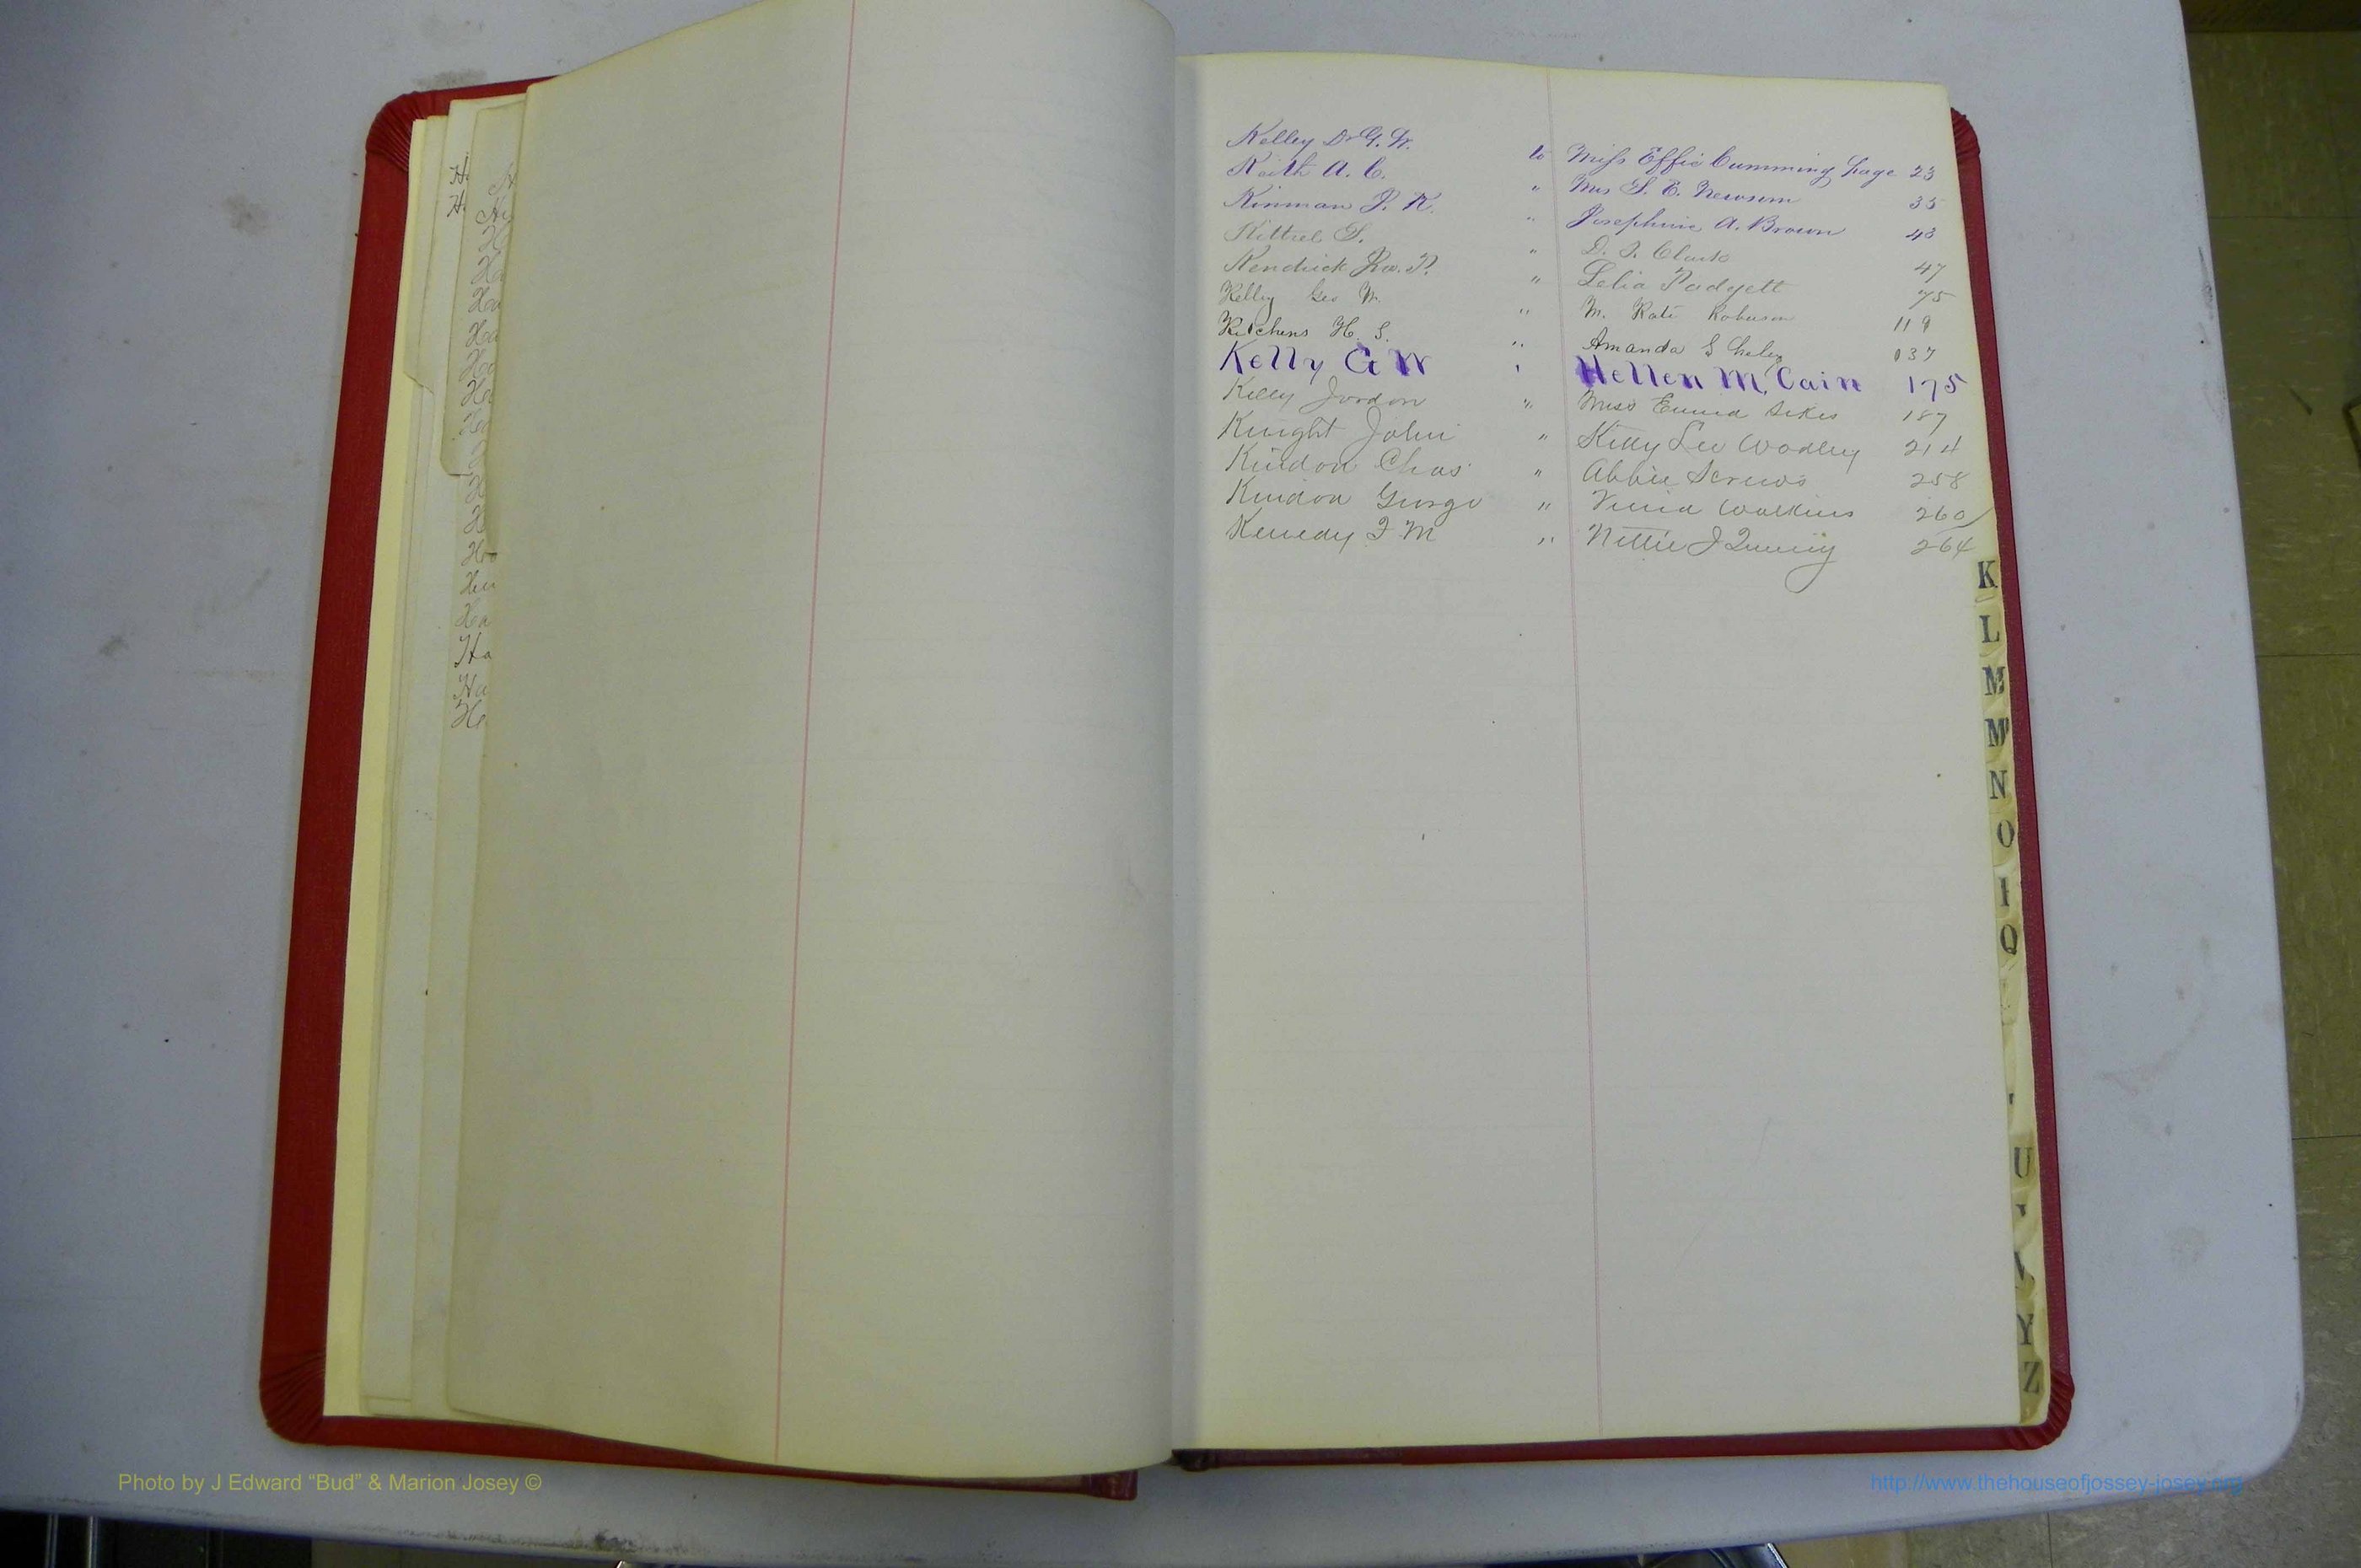 Kelley Dr G. W. to Miss Effie Cumming page 23
Keith A. C. " Mrs S. E. Newsom 35
Kinman J. K. " Josephine A. Brown 43
Kittrel S. " D. I. Clark 47
Kendrick Jno. T. " Lelia Padgett 75
Kelley Geo W. " M. Kate Robuson 119
Kitchens H. S. " Amanda S 137
Kelly G W " Hellen M. Cain 175
Kelly Jordon " Miss Sikes 187
Knight John " Kitty Lee Wadley 214
Chas " Abbie Screws 258
George " Watkins 260
Kenedy F M " Nettie J 264
K
L
M
M
N
O
Q
U
Y
Z
Photo by J Edward “Bud” & Marion Josey ©
http://www.thehouseofjossey-josey.org